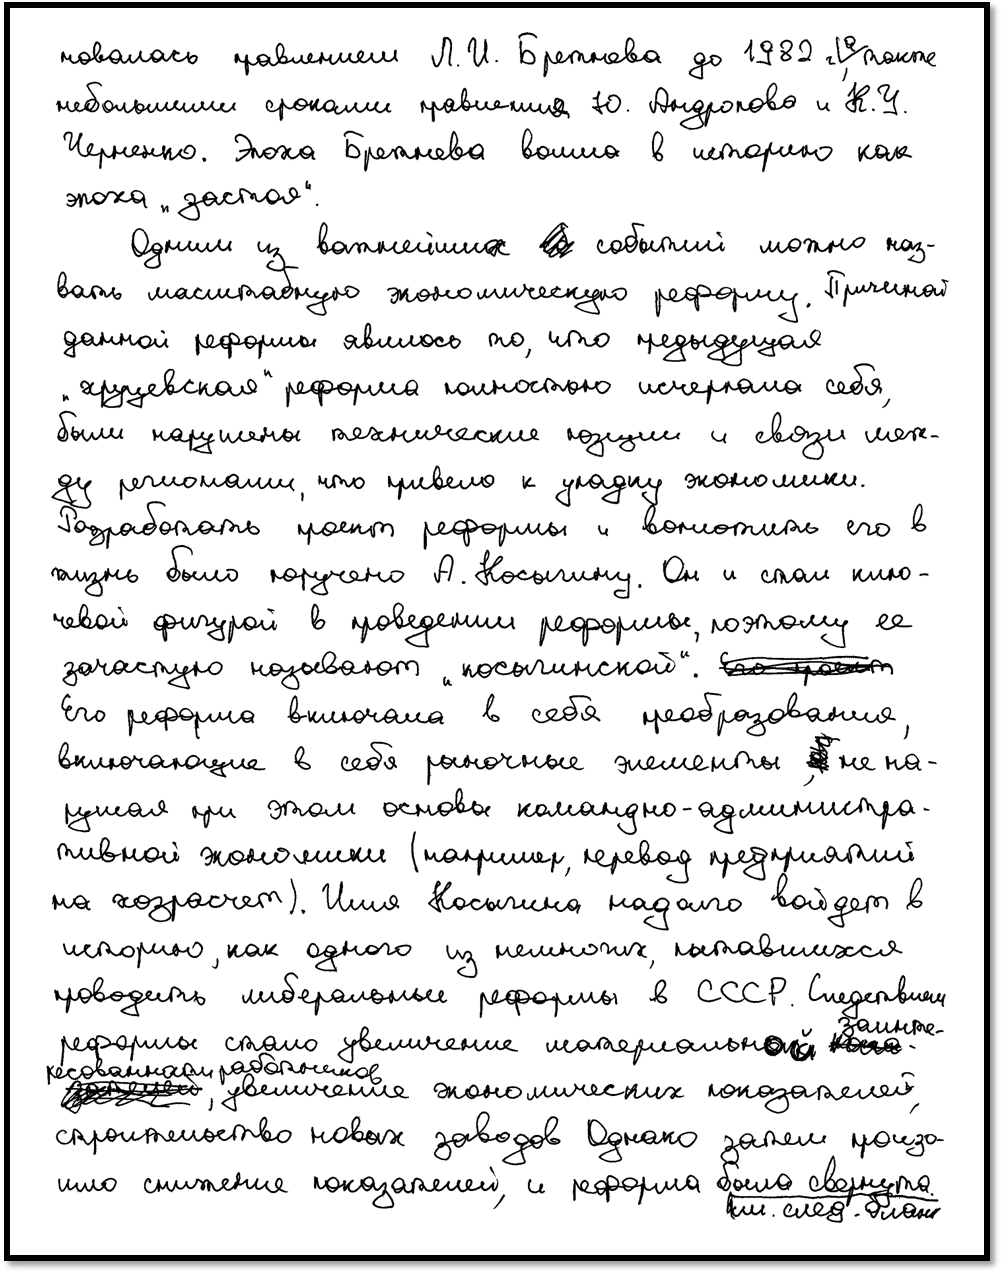 новалась правлением Л.И. Брежнева до 1982 г., а также
небольшими сроками правления Ю. Андропова и К.У.
Черненко. Эпоха Брежнева вошла в историю как
эпоха „застоя“.
Одним из важнейших событий можно наз-
вать масштабную экономическую реформу. Причиной
данной реформы явилось то, что предыдущая
„хрущевская“ реформа полностью исчерпала себя,
были нарушены технические позиции и связи меж-
ду регионами, что привело к упадку экономики.
Разработать проект реформы и воплотить его в
жизнь было поручено А. Косыгину. Он и стал клю-
чевой фигурой в проведении реформы, поэтому ее
зачастую называют „косыгинской“. Его проект
Его реформа включала в себя преобразования,
включающие в себя рыночные элементы, не на-
рушая при этом основы командно-администра-
тивной экономики (например, перевод предприятий
на хозрасчет). Имя Косыгина надолго войдет в
историю, как одного из немногих, пытавшихся
проводить либеральные реформы в СССР. Следствием
реформы стало увеличение материальной заинте-
ресованности работников, увеличение экономических показателей,
строительство новых заводов Однако затем произо-
шло снижение показателей, и реформа была свернута.
см. след. бланк